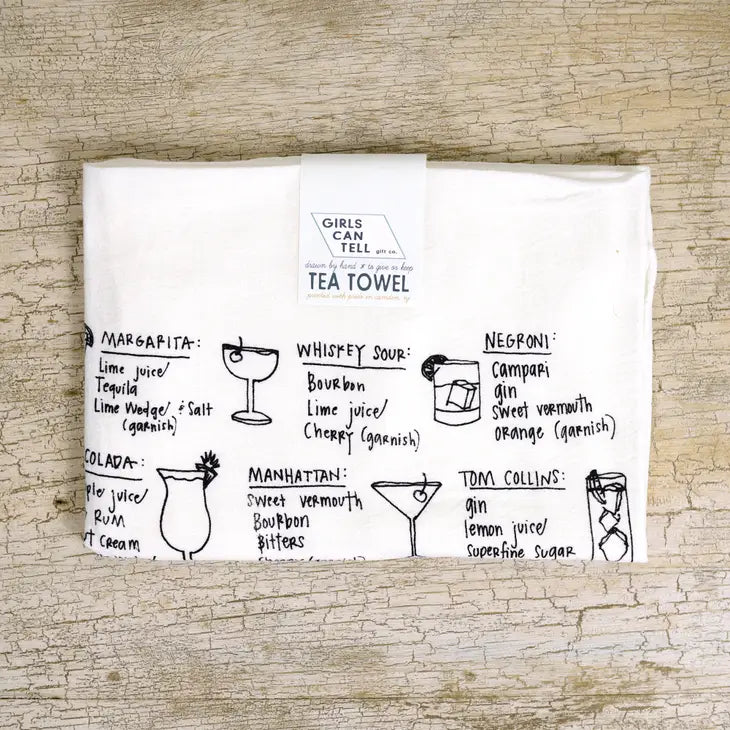 GIRLS
CAN
TELL gift co.
drawn by hand x to give or keep
TEA TOWEL
printed with pride in camden, nj
MARGARITA:
Lime juice
Tequila
Lime Wedge & Salt
(garnish)
WHISKEY SOUR:
Bourbon
Lime juice
Cherry (garnish)
NEGRONI:
Campari
gin
sweet vermouth
orange (garnish)
COLADA:
ple juice
RUM
t cream
MANHATTAN:
sweet vermouth
Bourbon
Bitters
TOM COLLINS:
gin
lemon juice
superfine sugar